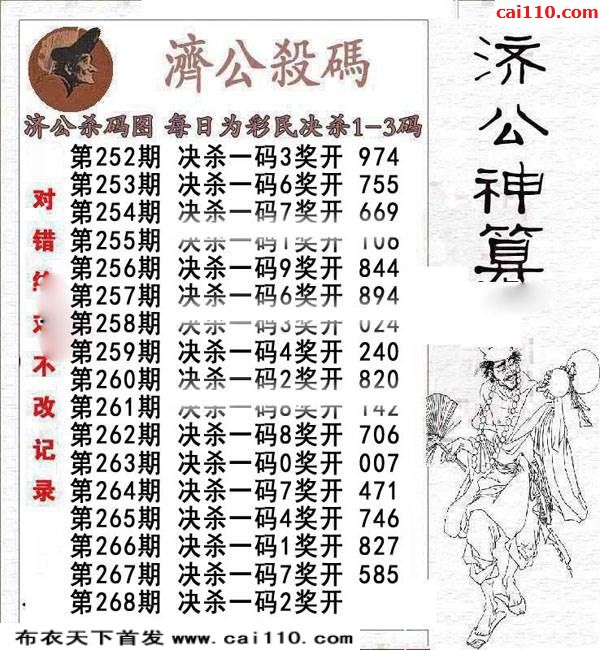 cai110.com
濟公殺碼
济公杀码图 每日为彩民决杀1-3码
第252期 决杀一码3奖开 974
第253期 决杀一码6奖开 755
第254期 决杀一码7奖开 669
第255期 决杀一码1奖开 108
第256期 决杀一码9奖开 844
第257期 决杀一码6奖开 894
第258期 决杀一码3奖开 024
第259期 决杀一码4奖开 240
第260期 决杀一码2奖开 820
第261期 决杀一码8奖开 142
第262期 决杀一码8奖开 706
第263期 决杀一码0奖开 007
第264期 决杀一码7奖开 471
第265期 决杀一码4奖开 746
第266期 决杀一码1奖开 827
第267期 决杀一码7奖开 585
第268期 决杀一码2奖开
对错 不改记录
济公神算
布衣天下首发 www.cai110.com